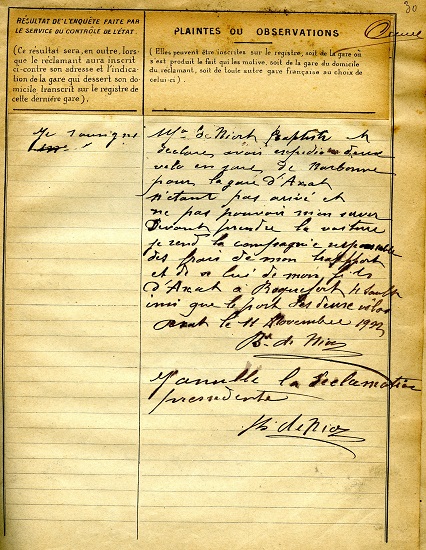 30
RÉSULTAT DE L'ENQUÊTE FAITE PAR
LE SERVICE DU CONTRÔLE DE L'ÉTAT.
(Ce résultat sera, en outre, lors-
que le réclamant aura inscrit
ci-contre son adresse et l'indica-
tion de la gare qui dessert son do-
micile transcrit sur le registre de
cette dernière gare),
PLAINTES OU OBSERVATIONS
(Elles peuvent être inscrites sur le registre, soit de la gare où
s'est produit le fait qui les motive, soit de la gare du domicile
du réclamant, soit de toute autre gare française au choix de
celui-ci.)
Je soussigné
Mr de Niort Baptiste
declare avoir expedier deux
velo en gare de Narbonne
pour la gare d'Axat
n'étant pas arrivé et
ne pas pouvoir m'en
Devant prendre la voiture
je rend la compagnie responsable
des frais de mon transport
et de celui de mon fils
D'Axat à Roquefort de Sault
insi que le port des deux vélos
Axat le 11 Novembre 1922
Bte de Niort
J'annulle la Réclamation
pressedente
B de Niort